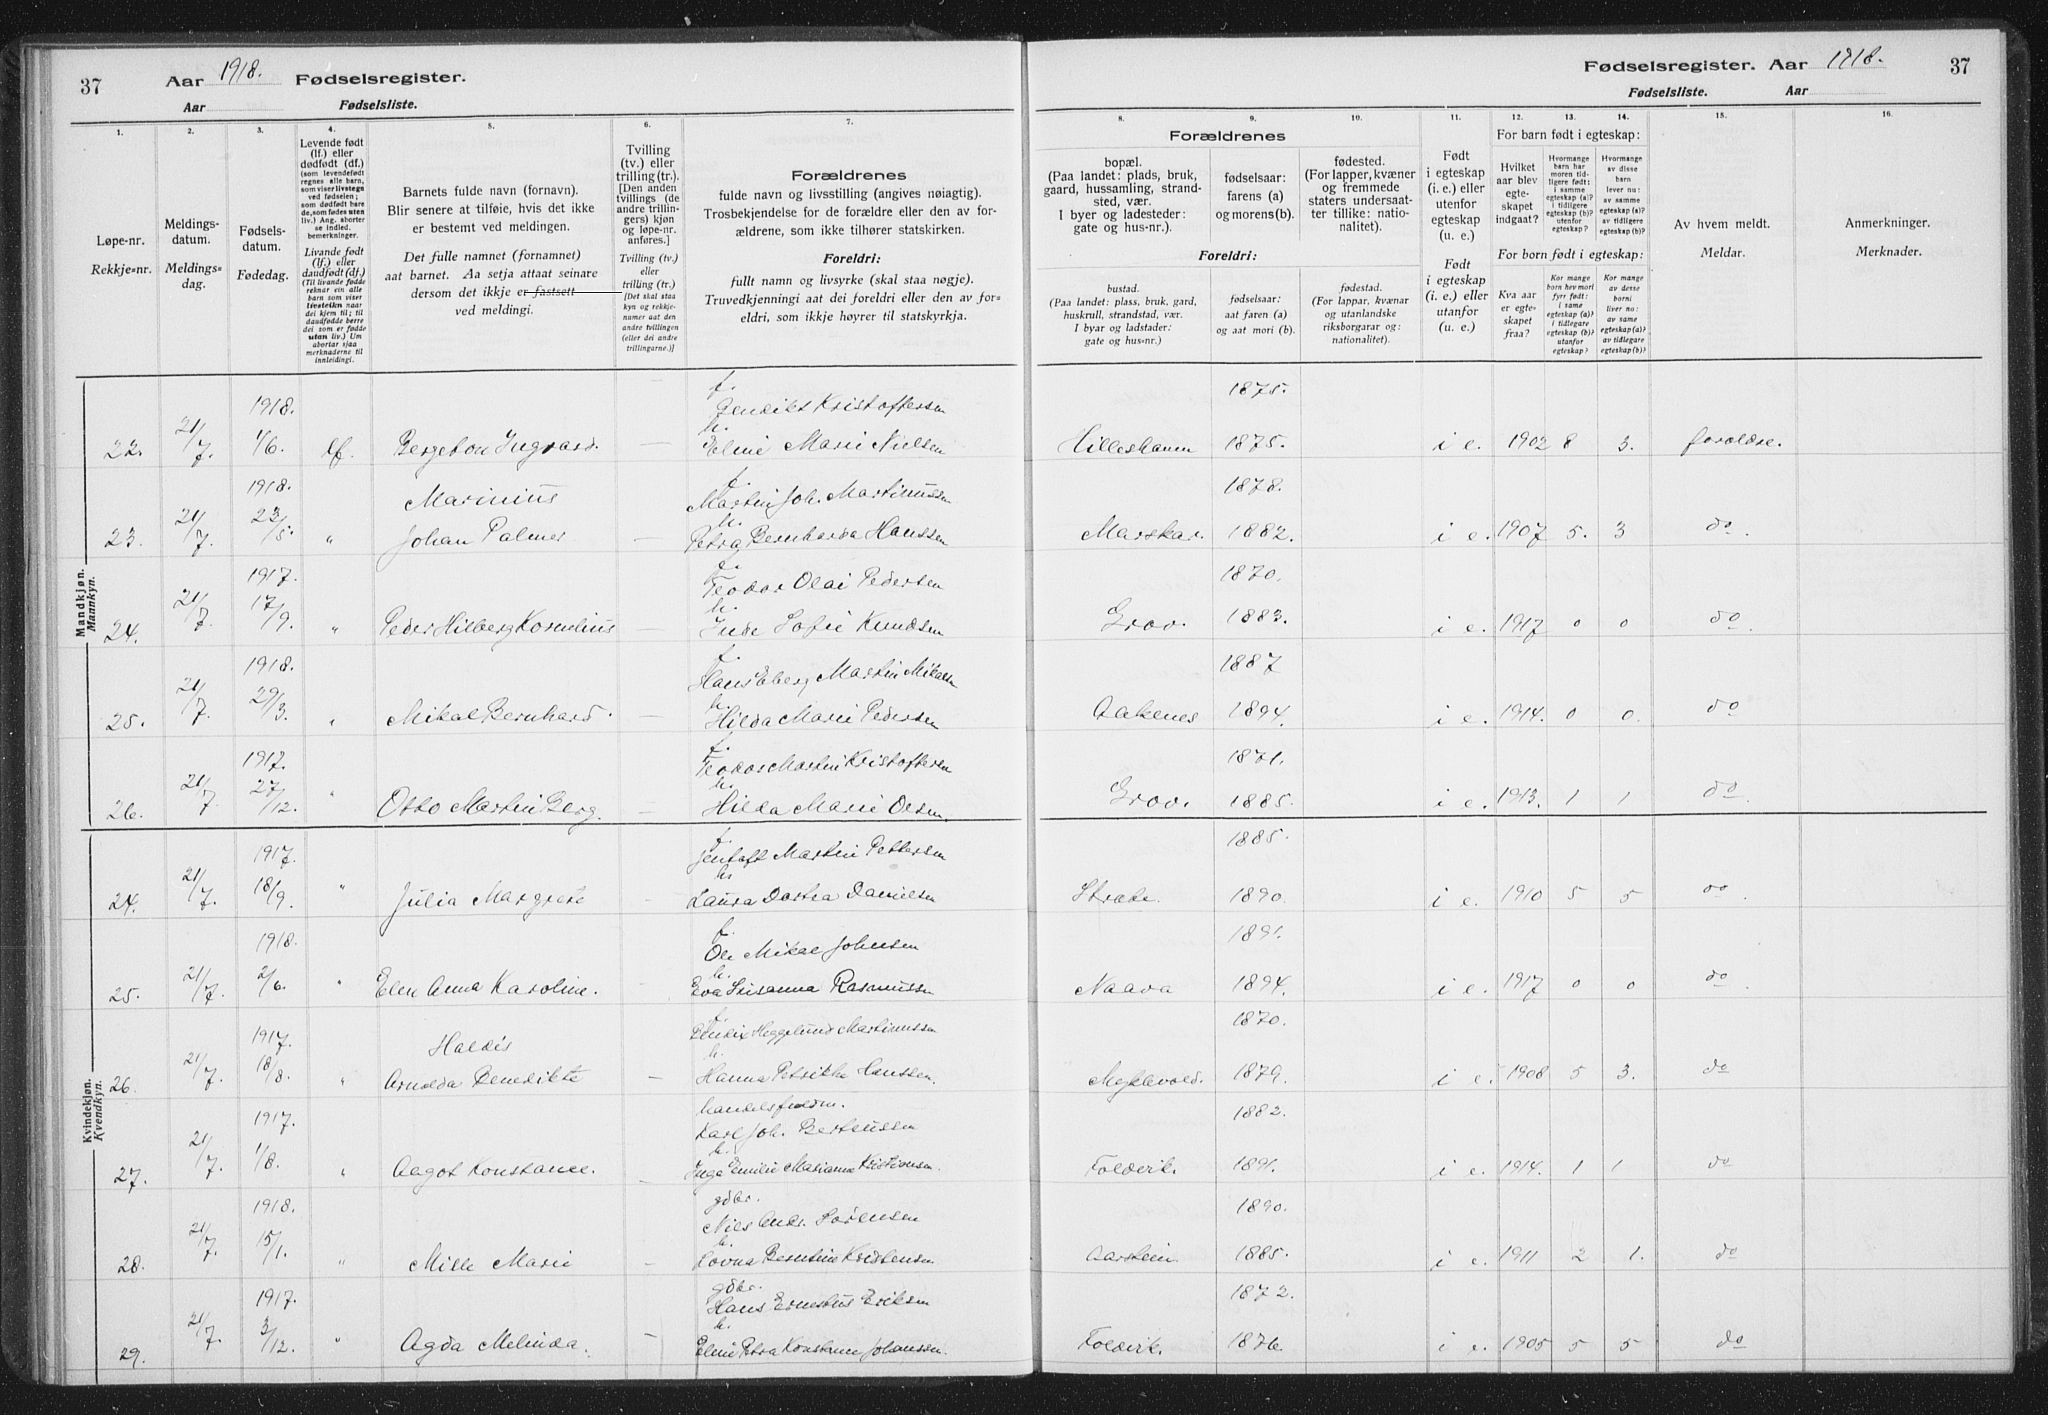 37 Aar 1918. Fødselsregister.
Aar Fødselsliste.
Fødselsregister. Aar 1918. 37
Fødselsliste. Aar
1. 2. 3. 4. 5. 6. 7.
8. 9. 10. 11. 12. 13. 14. 15. 16.
Løpe-nr.
Rekkje=nr.
Meldings-
datum.
Meldings=
dag.
Fødsels-
datum.
Fødedag.
Levende født
(lf.) eller
dødfødt (df.)
(som levendefødt
regnes alle barn,
som viser livstegn
ved fødselen;
som dødfødt bare
de, som fødes uten
liv.) Ang. aborter
se indled.
bemerkninger.
Livande fødde
(lf.) eller
daudfødt (df.)
(Til livande fødde
reknar ein alle
born som viser
livsteikn naar
dei kjem til; til
daudfødde berre
dei som er fødde
utan liv.) Um
abortar sjaa
merknaderne til
innleidingi.
Barnets fulde navn (fornavn).
Blir senere at tilføie, hvis det ikke
er bestemt ved meldingen.
Det fulle namnet (fornamnet)
aat barnet. Aa setja attaat seinare
dersom det ikkje er fastsett
ved meldingi.
Tvilling
(tv.) eller
trilling (tr.).
[Den anden
tvillings (de
andre trillin-
gers) kjøn
og løpe-nr.
anføres.]
Tvilling (tv.)
eller
trilling (tr.)
[Det skal staa
kyn og rekkje-
numer aat den
andre tvillingen
(eller dei andre
trillingarne.)]
Forældrenes
fulde navn og livsstilling (angives nøiagtig).
Trosbekjendelse for de forældre eller den av for-
ældrene, som ikke tilhører statskirken.
Foreldri:
fullt namn og livsyrke (skal staa nøgje).
Truvedkjenningi aat dei foreldri eller den av for=
eldri, som ikkje høyrer til statskyrkja.
Forældrenes
bopæl.
(Paa landet: plads, bruk,
gaard, hussamling, strand-
sted, vær.
I byer og ladesteder:
gate og hus-nr.).
fødselsaar:
farens (a)
og morens (b).
fødested.
(For lapper, kvæner
og fremmede
staters undersaat-
ter tillike: natio-
nalitet).
Foreldri:
bustad.
(Paa landet: plass, bruk, gard,
huskrull, strandstad, vær.
I byar og ladstader:
gate og hus=nr.)
fødselsaar:
aat faren (a)
og aat mori (b).
fødestad.
(For lappar, kvænar
og utanlandske
riksborgarar og:
nationalitet).
Født
i egteskap
(i. e.) eller
utenfor
egteskap
(u. e.)
Født
i egteskap
(i. e.) eller
utanfor
(u. e.)
For barn født i egteskap:
Hvilket
aar blev
egte-
skapet
indgaat?
Hvormange
barn har
moren tid-
ligere født:
i samme
egteskap (a)?
i tidligere
egteskap (b)?
utenfor
egteskap?
Hvormange
av disse
barn
lever nu:
av samme
egteskap (a)?
av tidligere
egteskap (b)?
For born født i egteskap:
Kva aar
er egte-
skapet
fraa?
Kor mange
born hev mori
fyrr født:
i same
egteskap (a)?
i tidlegare
egteskap (b)?
utanfor
egteskap?
Kor mange
av desse
borni
liver no:
av same
egteskap (a)?
av tidlegare
egteskap (b)?
Av hvem meldt.
Meldar.
Anmerkninger.
Merknader.
Mandkjøn.
Mannkyn.
1918. f. 1875.
Bendikt Kristoffersen
22. 21/7. 1/6. lf. Bergeton Ingvard. — Eline Marie Nielsen Hilleshamn 1875. i e. 1902 8 3. foreldre.
1918. Marinius f. 1878.
Martin Joh. Martinussen
23. 21/7 23/5. " Johan Palmer — Petra Bernharda Hanssen Marskar. 1882. i e. 1907 5. 3 do.
1917. f. Teodor Olai Pedersen 1870.
24. 21/7. 17/9. " Peder Hilberg Kornelius h. Sofie Knudsen Grov. 1883. i e. 1917 0 0 do
1918. f. 1887
Martin Mikalsen
25. 21/7. 29/3. " Mikal Bernhard. — Hilda Marie Pedersen Aakenes 1894. i e. 1914. 0 0. do
1917. f. Teodor Martin Kristoffersen 1871.
26. 21/7. 27/12. " Otto Martin Berg. — Hilda Marie Olsen. Grov. 1885. i e. 1913. 1 1 do.
Kvindekjøn.
Kvendkyn.
1917. f. Jentoft Martin Pettersen 1885.
24. 21/7. 18/9. " Julia Margrete — Laura Dortea Danielsen 1890. i e. 1910 5 5 do.
1918. f. Ole Mikal Johnsen 1891.
25. 21/7. 2/6. " Elen Anna Karoline. — Eva Susanna Rasmussen Naava 1894. i e. 1917 0 0 do
1917. Haldis f. Bendix Heggelund Martinussen 1870.
26. 21/7. 18/8. " Arnolda Benedikte — Hanna Petrikke Hanssen. Myklevold. 1879. i e. 1908 5 3. do
1917. handelsfuldm. 1882.
Karl Joh. Berteussen
27. 21/7. 1/8. " Aagot Konstance. — Inga Emilie Marianne Kristiansen. Foldvik. 1891. i e. 1914. 1 1 do
1918. gdbr. 1890.
Nils Andr. Sørensen
28. 21/7. 15/1. " Mille Marie — Hovna Berntine Kristensen Aarstein 1885. i e. 1911 2 1. do
1917. gdbr. 1872.
Hans Ernestus Eriksen
29. 21/7. 3/12. " Agda Melinda. — Eline Petra Konstance Johanssen. Foldvik. 1876. i e. 1905 5 5 do